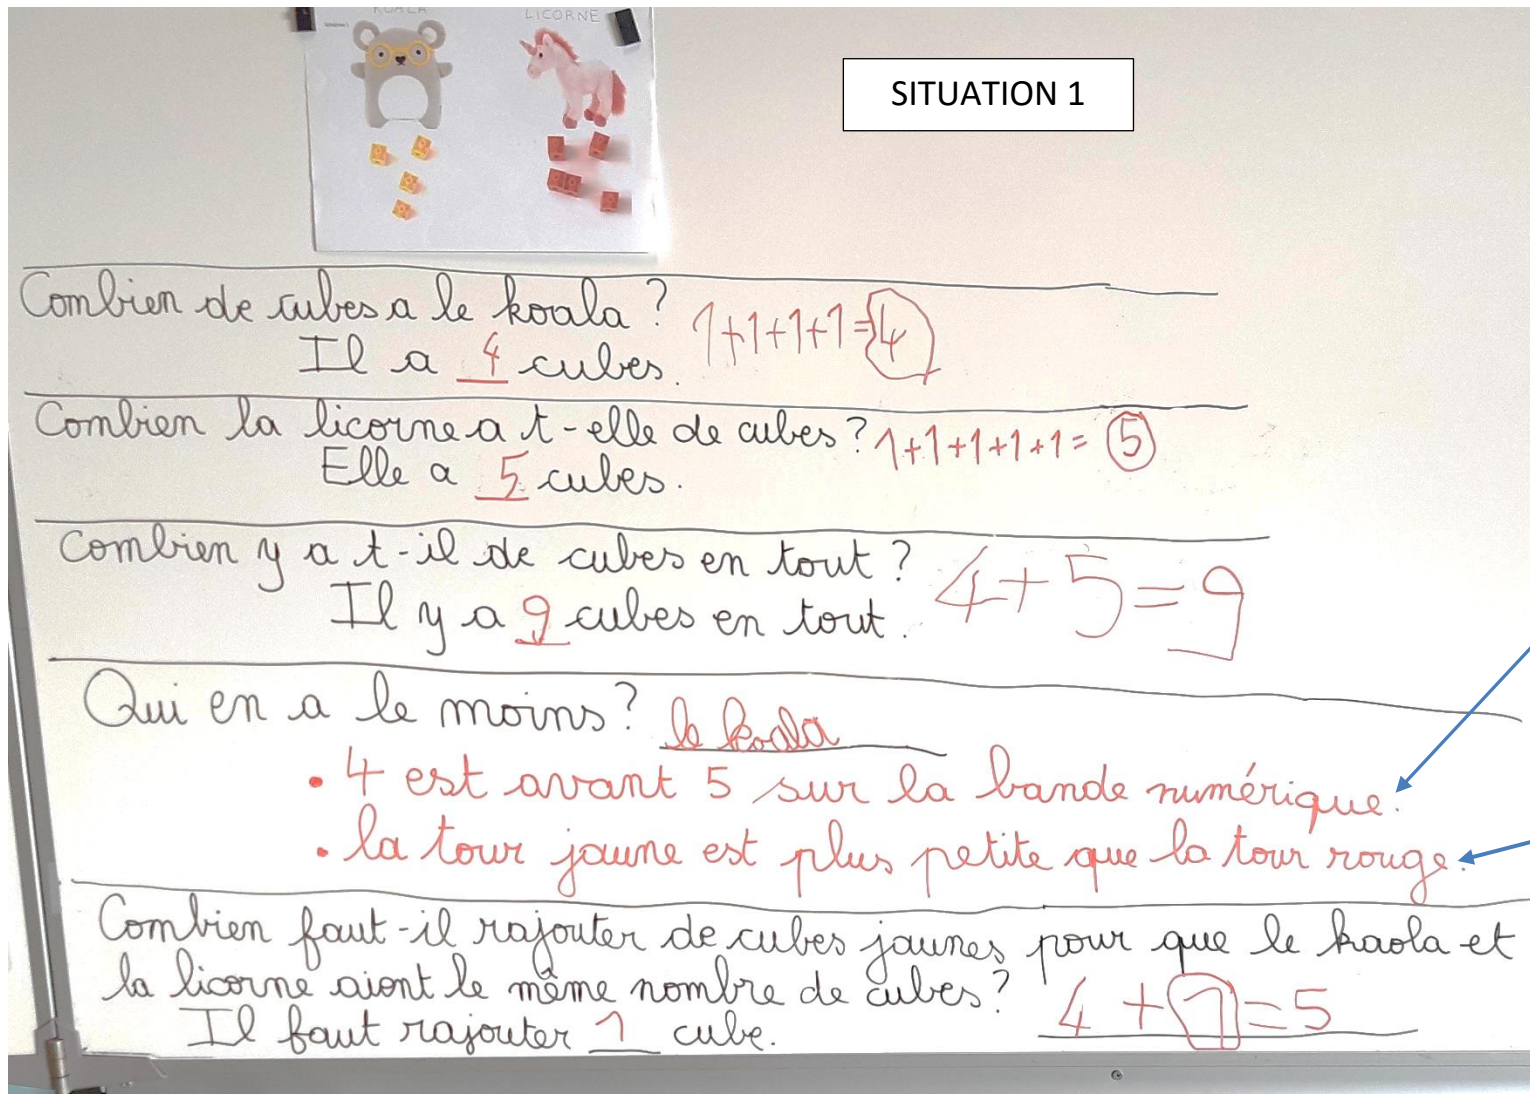 KOALA
LICORNE
SITUATION 1
Combien de cubes a le koala ? 1+1+1+1=4
Il a 4 cubes.
Combien la licorne a t-elle de cubes ? 1+1+1+1+1= 5
Elle a 5 cubes.
Combien y a t-il de cubes en tout ? 4+5=9
Il y a 9 cubes en tout.
Qui en a le moins ? le koala
• 4 est avant 5 sur la bande numérique.
• la tour jaune est plus petite que la tour rouge.
Combien faut-il rajouter de cubes jaunes pour que le kaola et
la licorne aiont le même nombre de cubes ? 4+1=5
Il faut rajouter 1 cube.